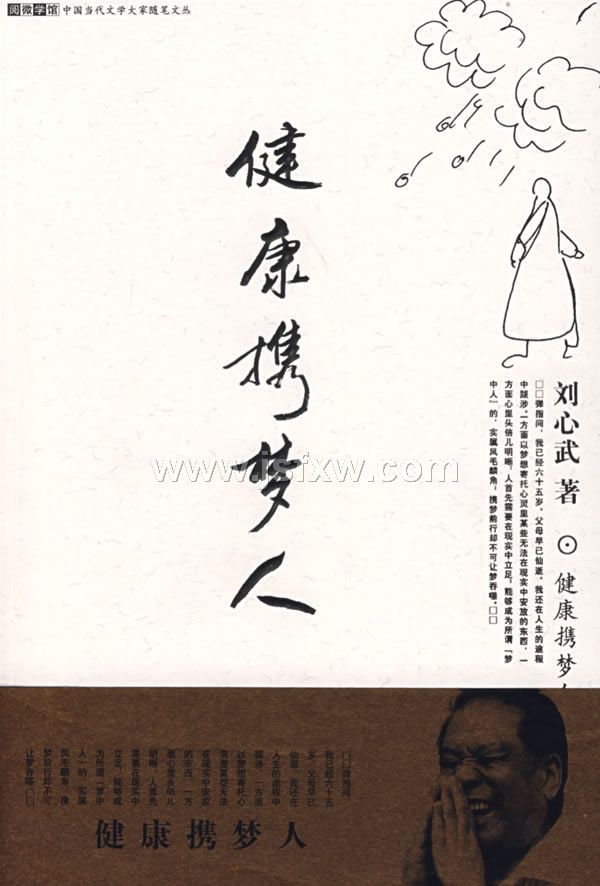 阅微学馆 中国当代文学大家随笔文丛
健康携梦人
刘心武 著 ⊙ 健康携梦人
□□弹指间，我已经六十五岁，父母早已仙逝，我还在人生的途程
中跋涉。一方面以梦想寄托心灵里某些无法在现实中安放的东西，一
方面心里头倍儿明晰，人首先需要在现实中立足，能够成为所谓「梦
中人」的，实属凤毛麟角；携梦前行却不可让梦吞噬。□□
www.jsfxw.com
□□弹指间，
我已经六十五
岁，父母早已
仙逝，我还在
人生的途程中
跋涉。一方面
以梦想寄托心
灵里某些无法
在现实中安放
的东西，一方
面心里头倍儿
明晰，人首先
需要在现实中
立足，能够成
为所谓「梦中
人」的，实属
凤毛麟角；携
梦前行却不可
让梦吞噬。□□
健康携梦人